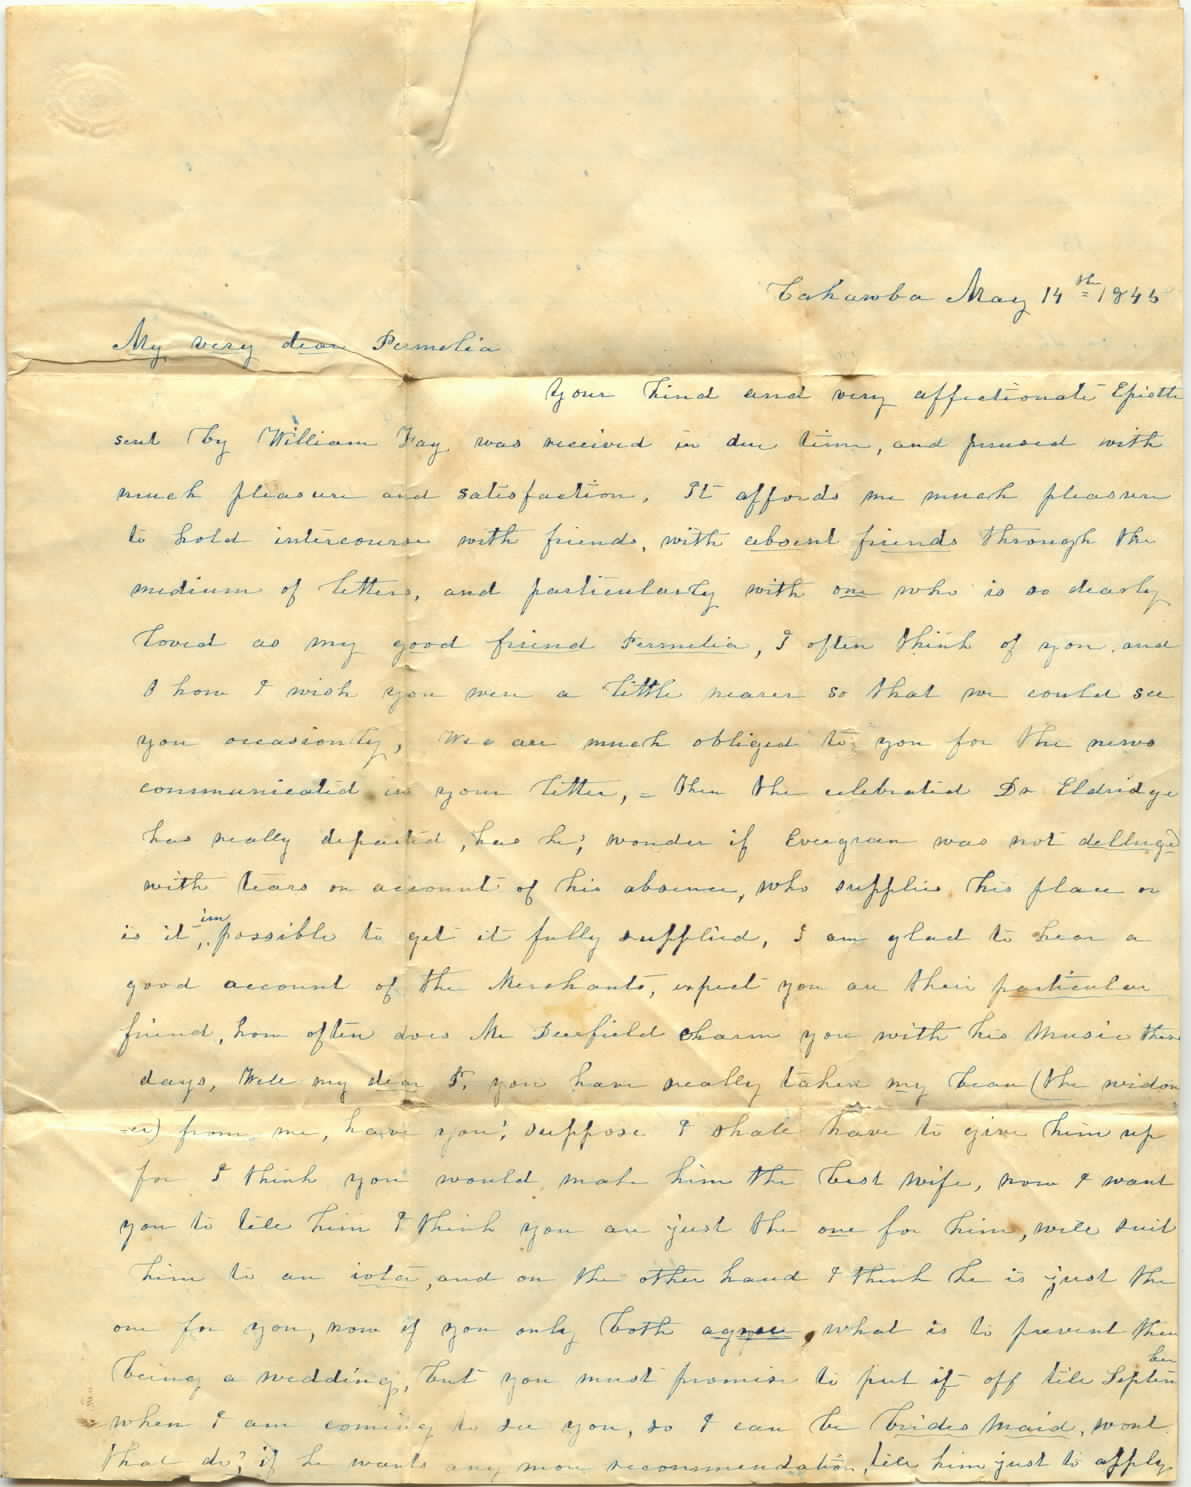 Cahawba May 14th 1845
My very dear Permelia
Your kind and very affectionate Epistle
sent by William Fay was received in due time, and perused with
much pleasure and satisfaction. It affords me much pleasure
to hold intercourse with friends, with absent friends through the
medium of letters, and particularly with one who is so dearly
loved as my good friend Permelia, I often think of you and
O how I wish you were a little nearer so that we could see
you occasionlly, We are much obliged to you for the news
communicated in your letter, = Then the celebrated Dr Eldridge
has really departed, has he; wonder if Evergreen was not delluged
with tears on account of his absence, who supplies his place or
is it impossible to get it fully supplied, I am glad to hear a
good account of the Merchants, expect you are their particular
friend, how often does Mr Deerfield charm you with his Music these
days, Well my dear P, you have really taken my beau (the widow
-er) from me, have you; suppose I shall have to give him up
for I think you would make him the best wife, now I want
you to tell him I think you are just the one for him, will suit
him to an iota, and on the other hand I think he is just the
one for you, now if you only both agree, what is to prevent there
being a wedding, but you must promise to put it off till September
when I am coming to see you, so I can be brides maid, wont
that do? if he wants any more recommendation, tell him just to apply